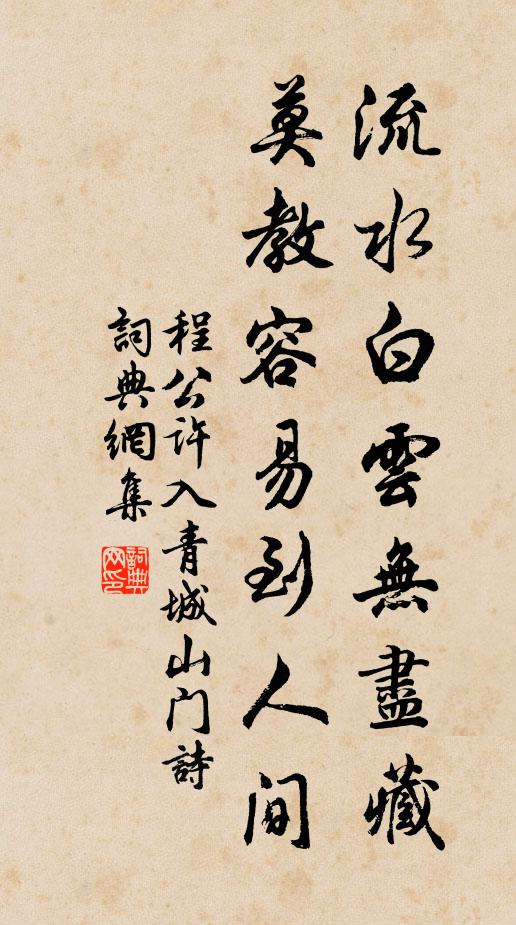 流水白雲無盡藏
莫教容易到人间
程公許入青城山門詩
詞典網集
詞典网印